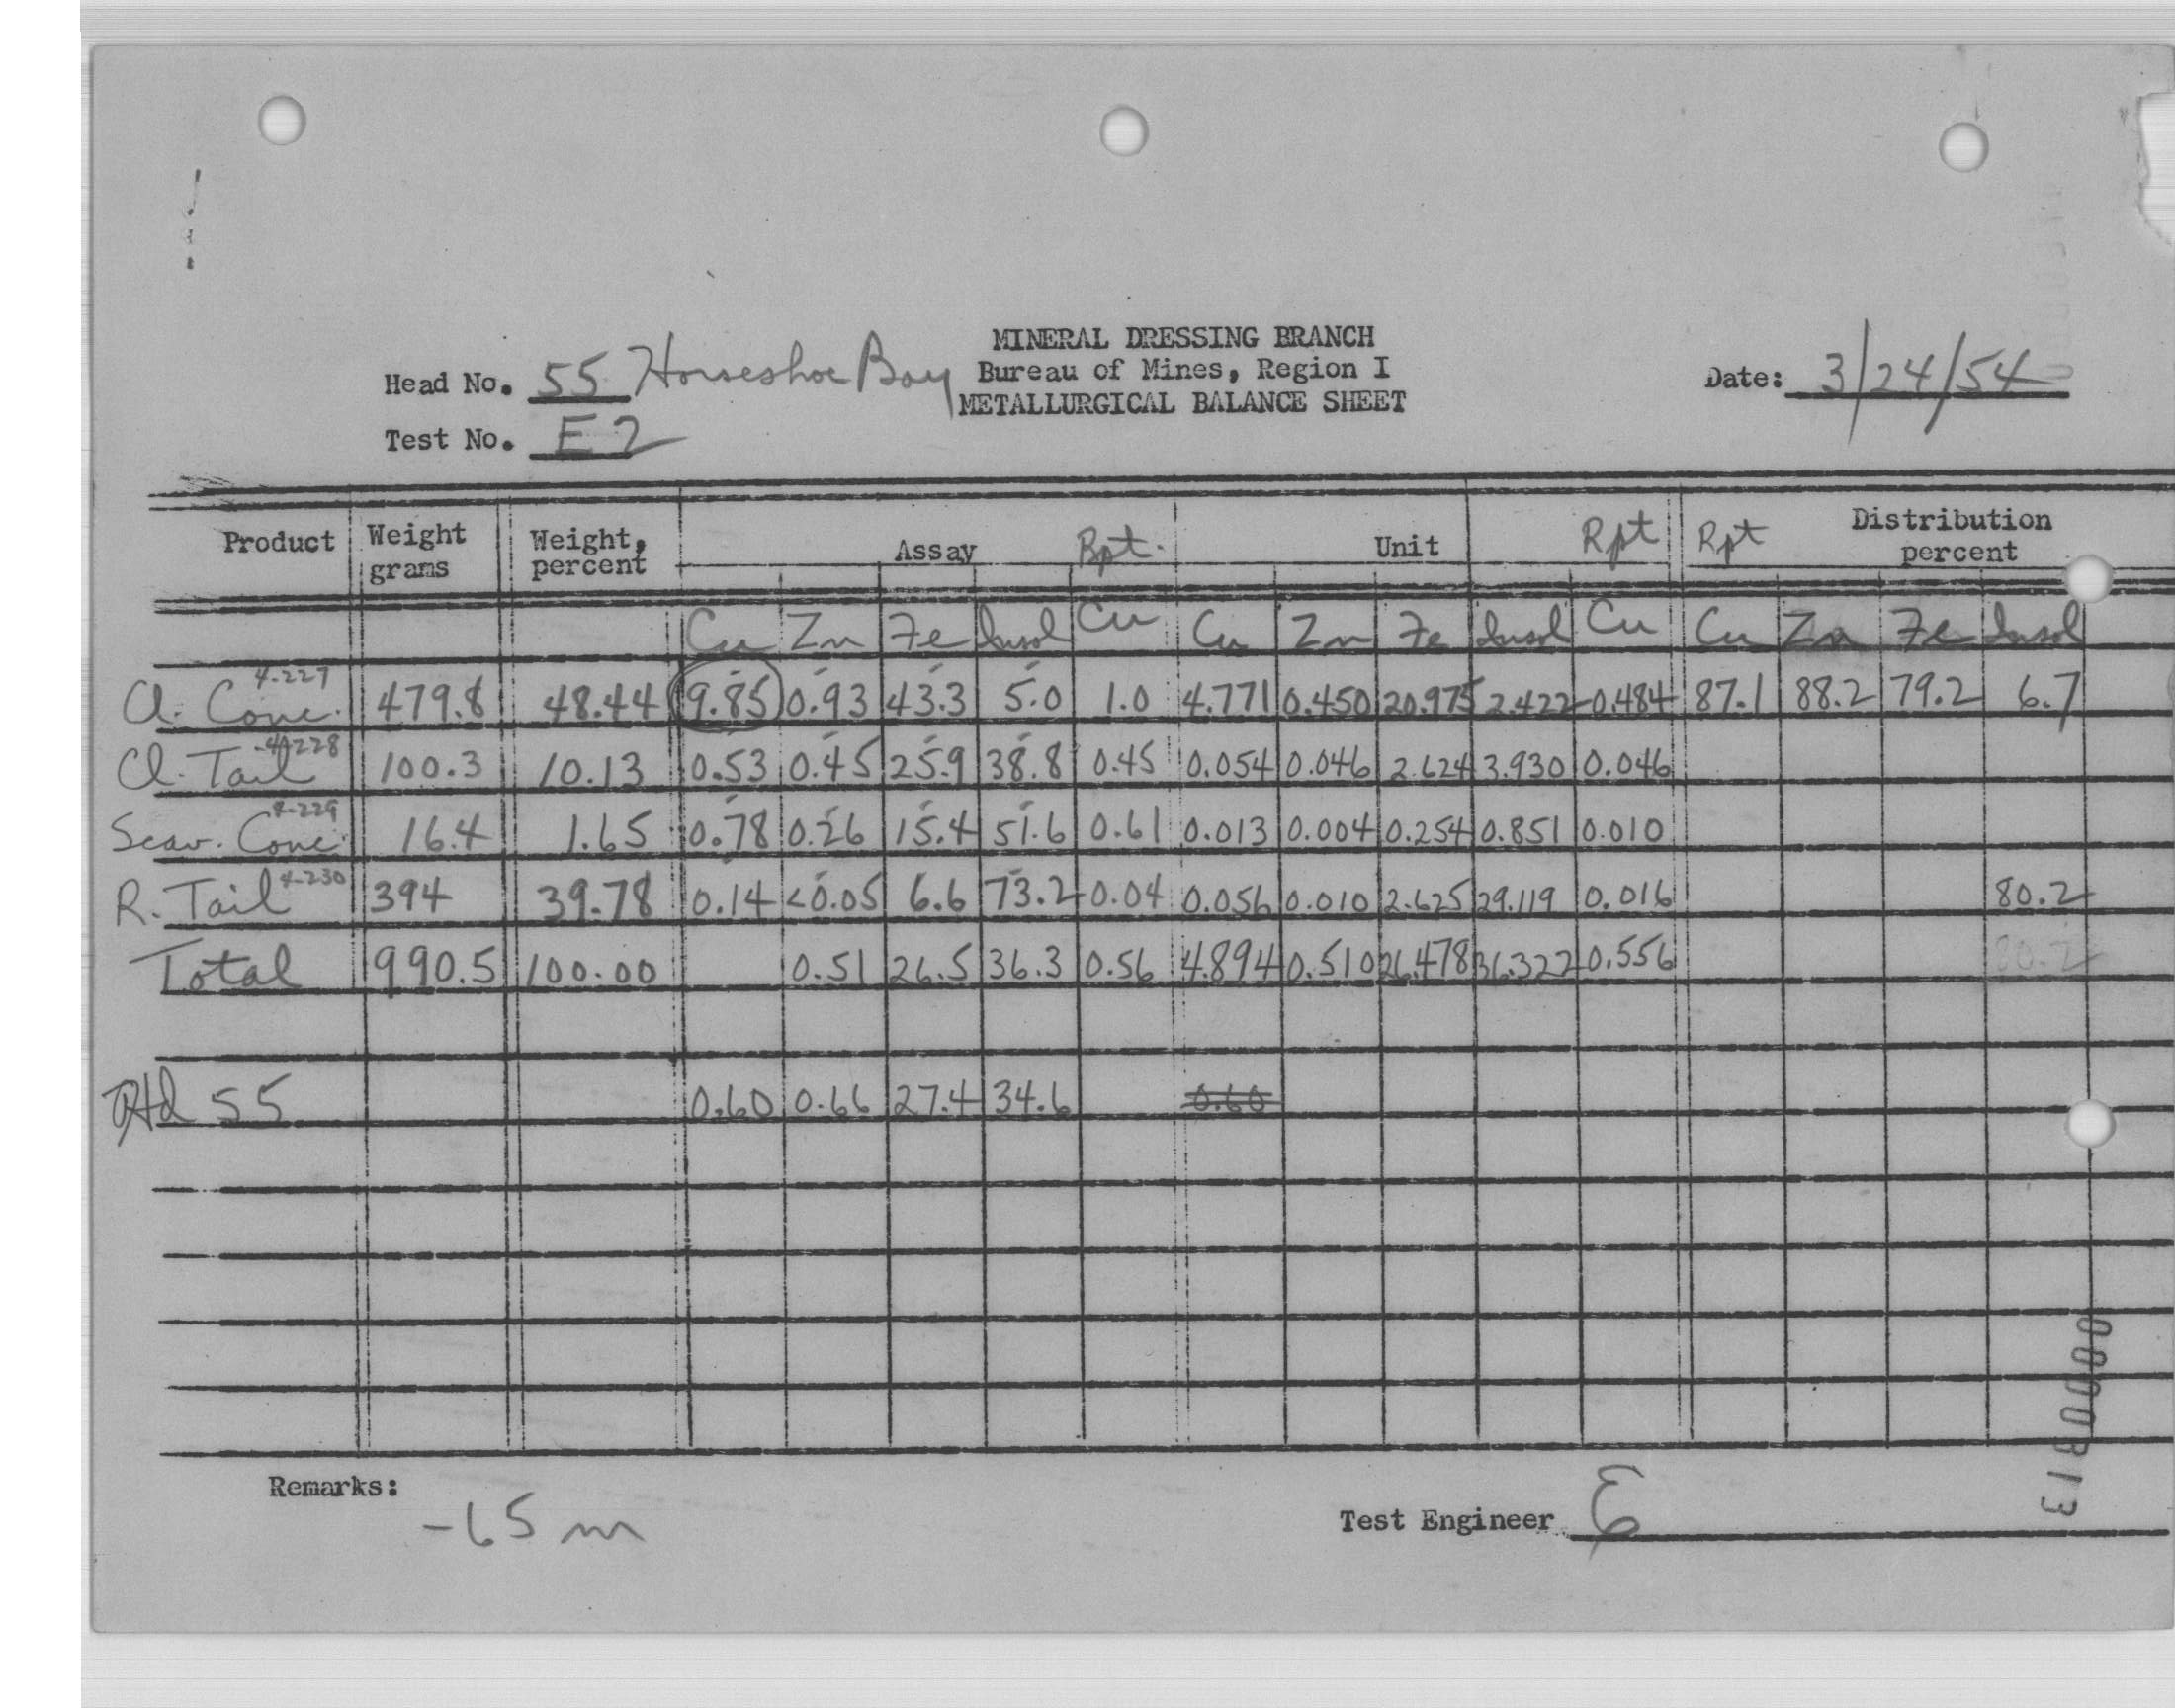 MINERAL DRESSING BRANCH
Head No. 55 Horseshoe Bay Bureau of Mines, Region I Date: 3/24/54
METALLURGICAL BALANCE SHEET
Test No. E2
Product Weight grams Weight, percent Assay Rpt. Unit Rpt Rpt Distribution percent
Cu Zn Fe Insol Cu Cu Zn Fe Insol Cu Cu Zn Fe Insol
Cl. Conc. 4-227 479.8 48.44 9.85 0.93 43.3 5.0 1.0 4.771 0.450 20.975 2.422 0.484 87.1 88.2 79.2 6.7
Cl. Tail -4-228 100.3 10.13 0.53 0.45 25.9 38.8 0.45 0.054 0.046 2.624 3.930 0.046
Scav. Conc. 4-229 16.4 1.65 0.78 0.26 15.4 51.6 0.61 0.013 0.004 0.254 0.851 0.010
R. Tail 4-230 394 39.78 0.14 <0.05 6.6 73.2 0.04 0.056 0.010 2.625 29.119 0.016 80.2
Total 990.5 100.00 0.51 26.5 36.3 0.56 4.894 0.510 26.478 36.322 0.556 80.2
Hd 55 0.60 0.66 27.4 34.6 0.60
Remarks:
-65 m
Test Engineer E